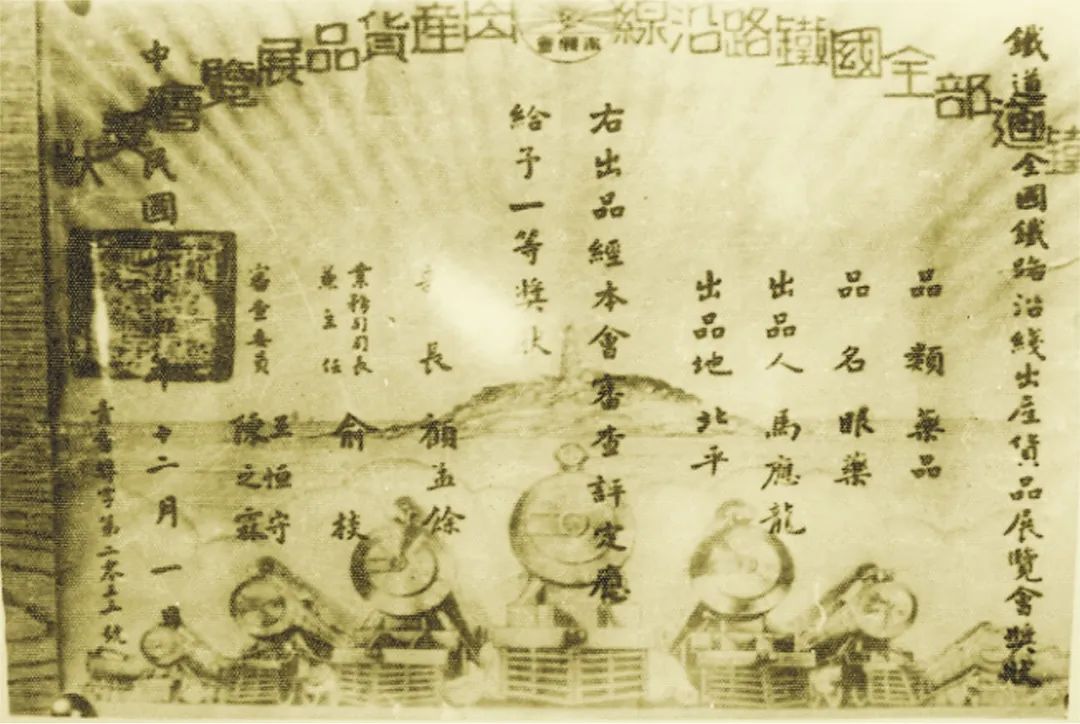 鐵道部全國鐵路沿線出產貨品展覽會獎狀
鐵道部全國鐵路沿綫出產貨品展覽會獎狀
品類 藥品
品名 眼藥
出品人 馬應龍
出品地 北平
右出品經本會審查評定應
給予一等獎狀
長 顧孟餘
業務司司長
兼主任 俞棪
審查委員 王恒守
陳之霖
中華民國年十二月一日
字第二零號